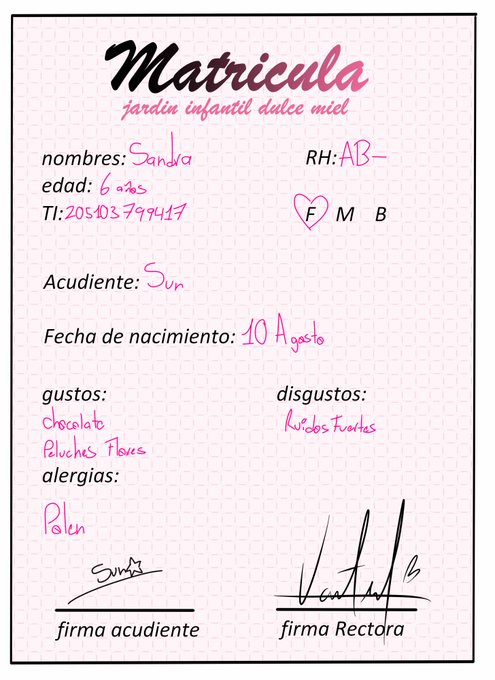 Matricula
jardin infantil dulce miel
nombres: Sandra RH: AB-
edad: 6 años
TI: 205103799417 F M B
Acudiente: Sun
Fecha de nacimiento: 10 Agosto
gustos: disgustos:
chocolate Ruidos Fuertes
Peluches Flores
alergias:
Polen
Sun
firma acudiente firma Rectora